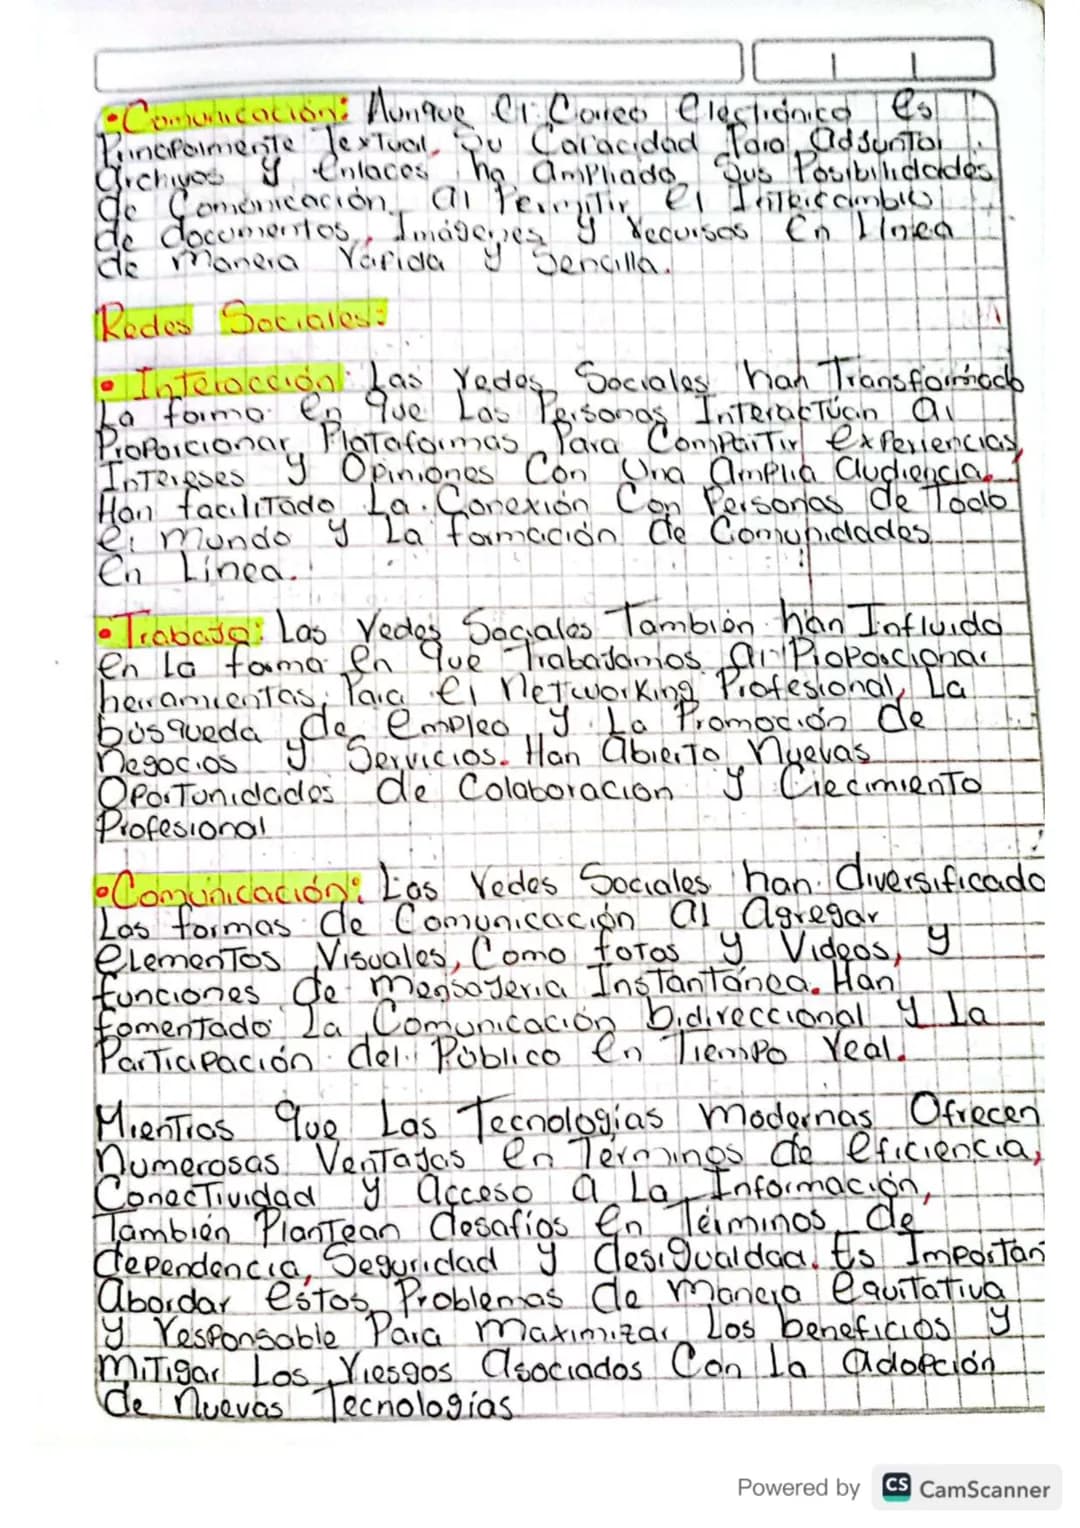 •Comunicación: Aunque el Correo electrónico es
Principalmente Textual, Su Capacidad Para adjuntar
archivos y enlaces ha ampliado Sus Posibilidades
de Comunicación al Permitir el Intercambio
de documentos, Imágenes y recursos en Línea
de manera rápida y Sencilla.
Redes Sociales:
• Interacción: Las redes Sociales han Transformado
La forma en que Las Personas Interactúan al
Proporcionar Plataformas Para Compartir experiencias,
Intereses y Opiniones Con Una amplia audiencia.
Han facilitado La Conexión Con Personas de Todo
el mundo y La formación de Comunidades
en Línea.
•Trabajo: Las redes Sociales También han Influido
en La forma en que Trabajamos al Proporcionar
herramientas Para el networking Profesional, La
búsqueda de empleo y La Promoción de
negocios y Servicios. Han abierto nuevas
Oportunidades de Colaboración y Crecimiento
Profesional
•Comunicación: Las redes Sociales han diversificado
Las formas de Comunicación al agregar
elementos Visuales, Como fotos y Videos, y
funciones de mensajería Instantánea. Han
fomentado La Comunicación bidireccional y la
Participación del Público en Tiempo real.
Mientras que Las Tecnologías modernas Ofrecen
numerosas Ventajas en Términos de eficiencia,
Conectividad y acceso a La Información,
También Plantean desafíos en Términos de
dependencia, Seguridad y desigualdad. Es Importan
abordar estos Problemas de manera equitativa
y responsable Para maximizar Los beneficios y
mitigar Los riesgos asociados Con la adopción
de nuevas Tecnologías
Powered by CS CamScanner